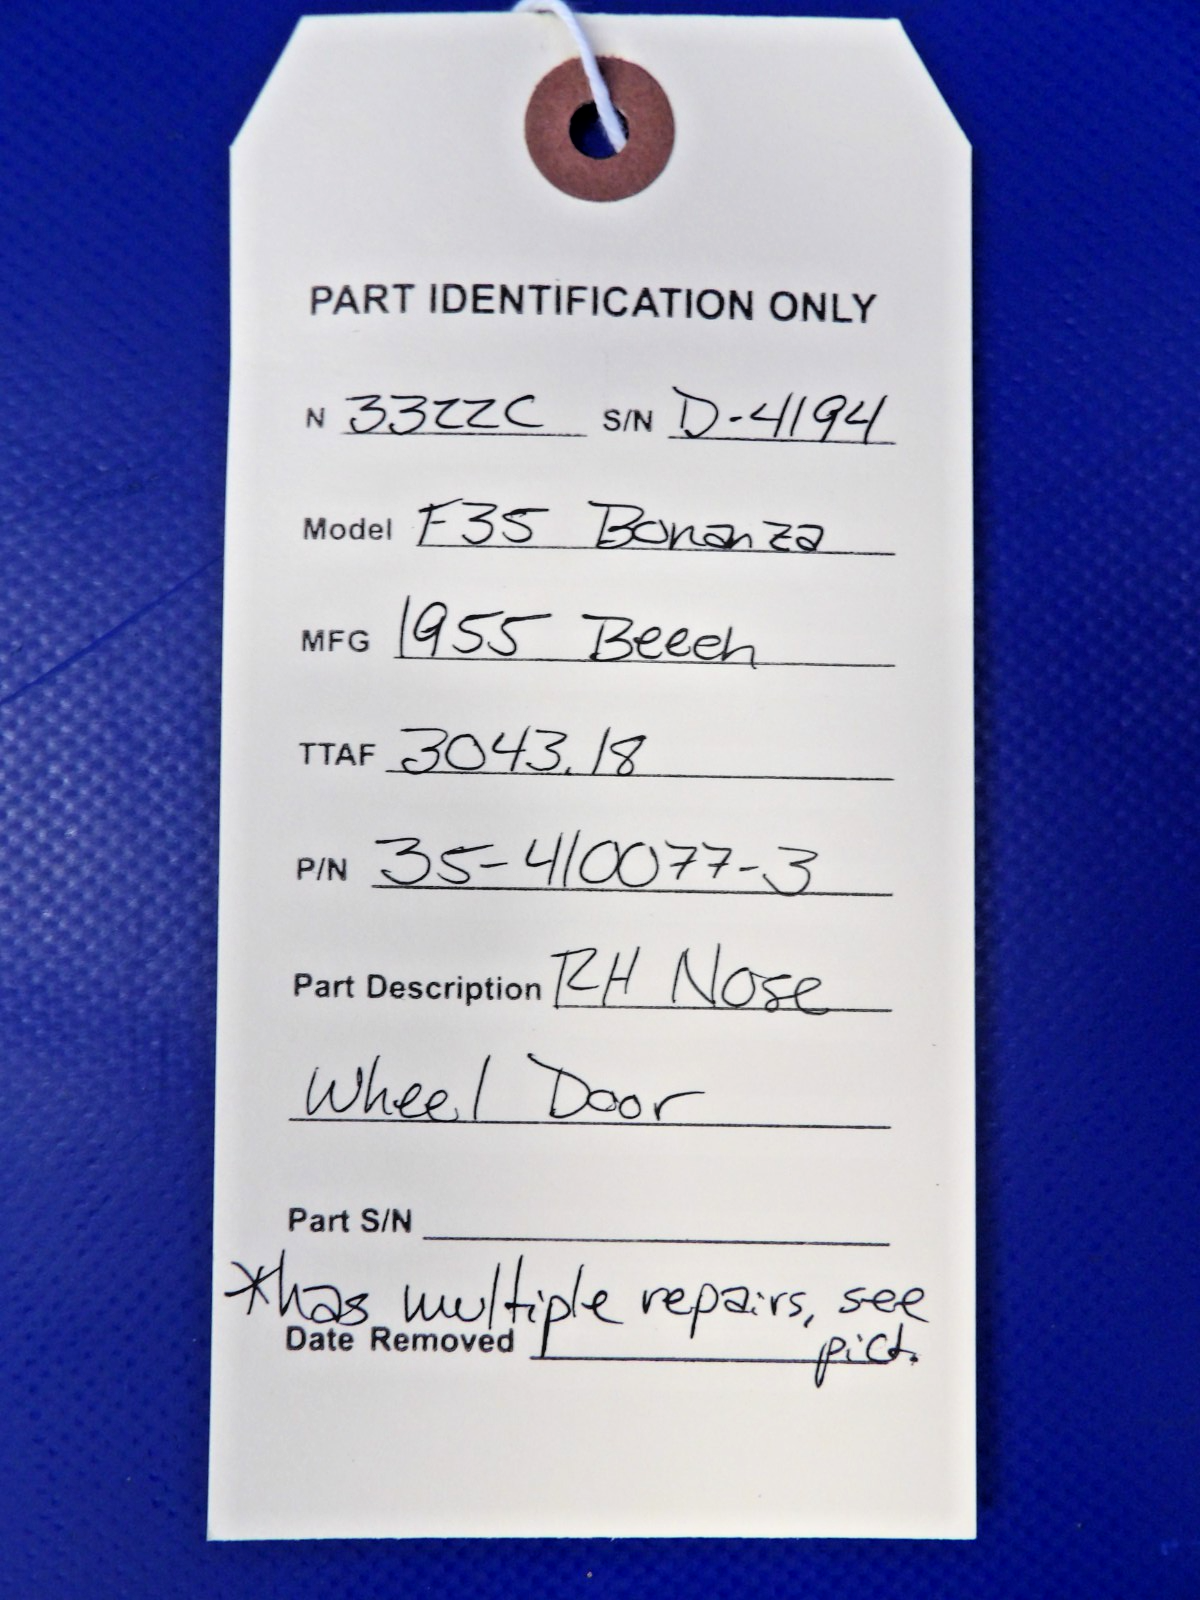 PART IDENTIFICATION ONLY
N 3322C S/N D-4194
Model F35 Bonanza
MFG 1955 Beech
TTAF 3043.18
P/N 35-410077-3
Part Description RH Nose
Wheel Door
Part S/N
*has multiple repairs, see
pict.
Date Removed